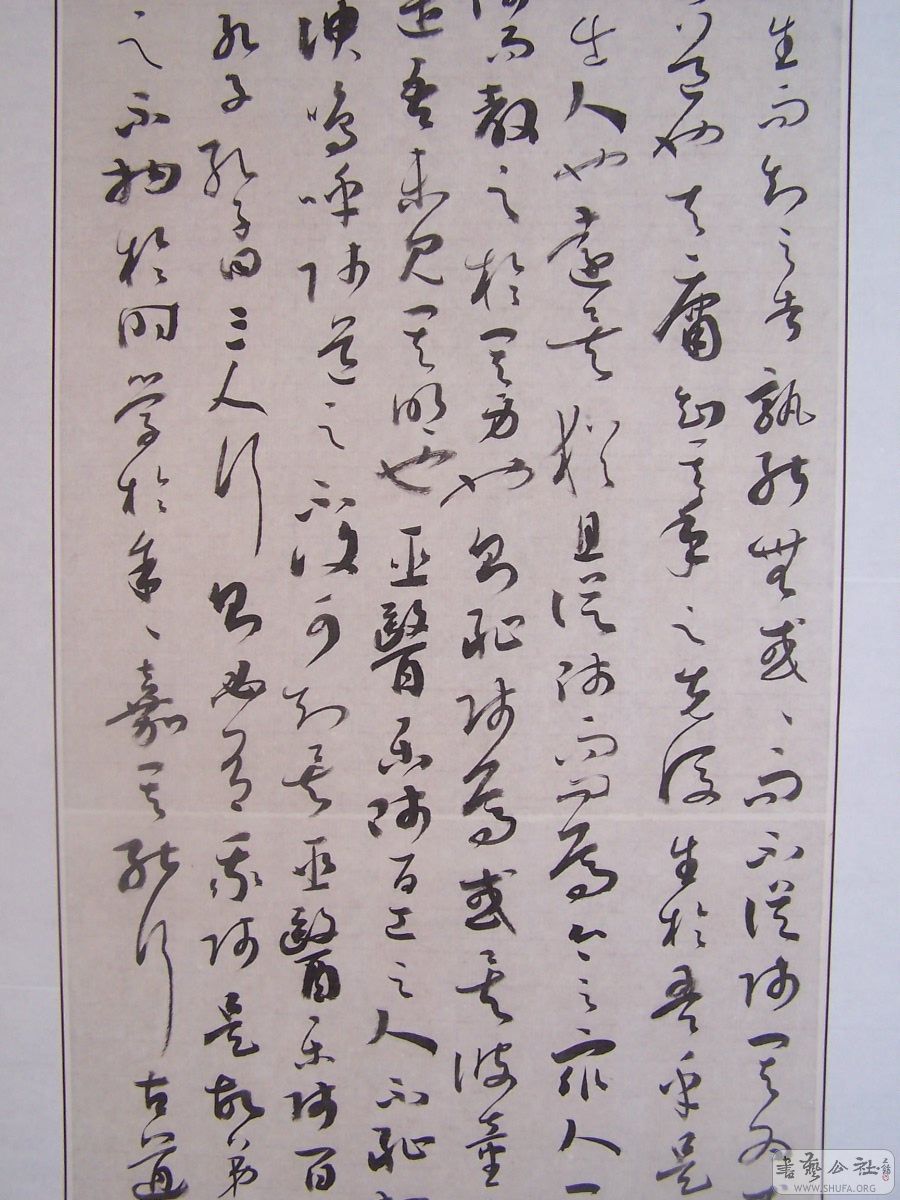 生而知之者孰能無惑、而不從師其為
道也夫庸知其年之先後生於吾乎是
出人也遠矣猶且從師而問焉今之眾人
而教之於其身也則恥師焉惑矣彼童
遺吾未見其明也巫醫樂師百工之人不恥
諛嗚呼師道之不復可知矣巫醫樂師百
孔子孔子曰三人行則必有我師是故弟
之不拘於時學於余、嘉其能行古道
書藝公社
WWW.SHUFA.ORG